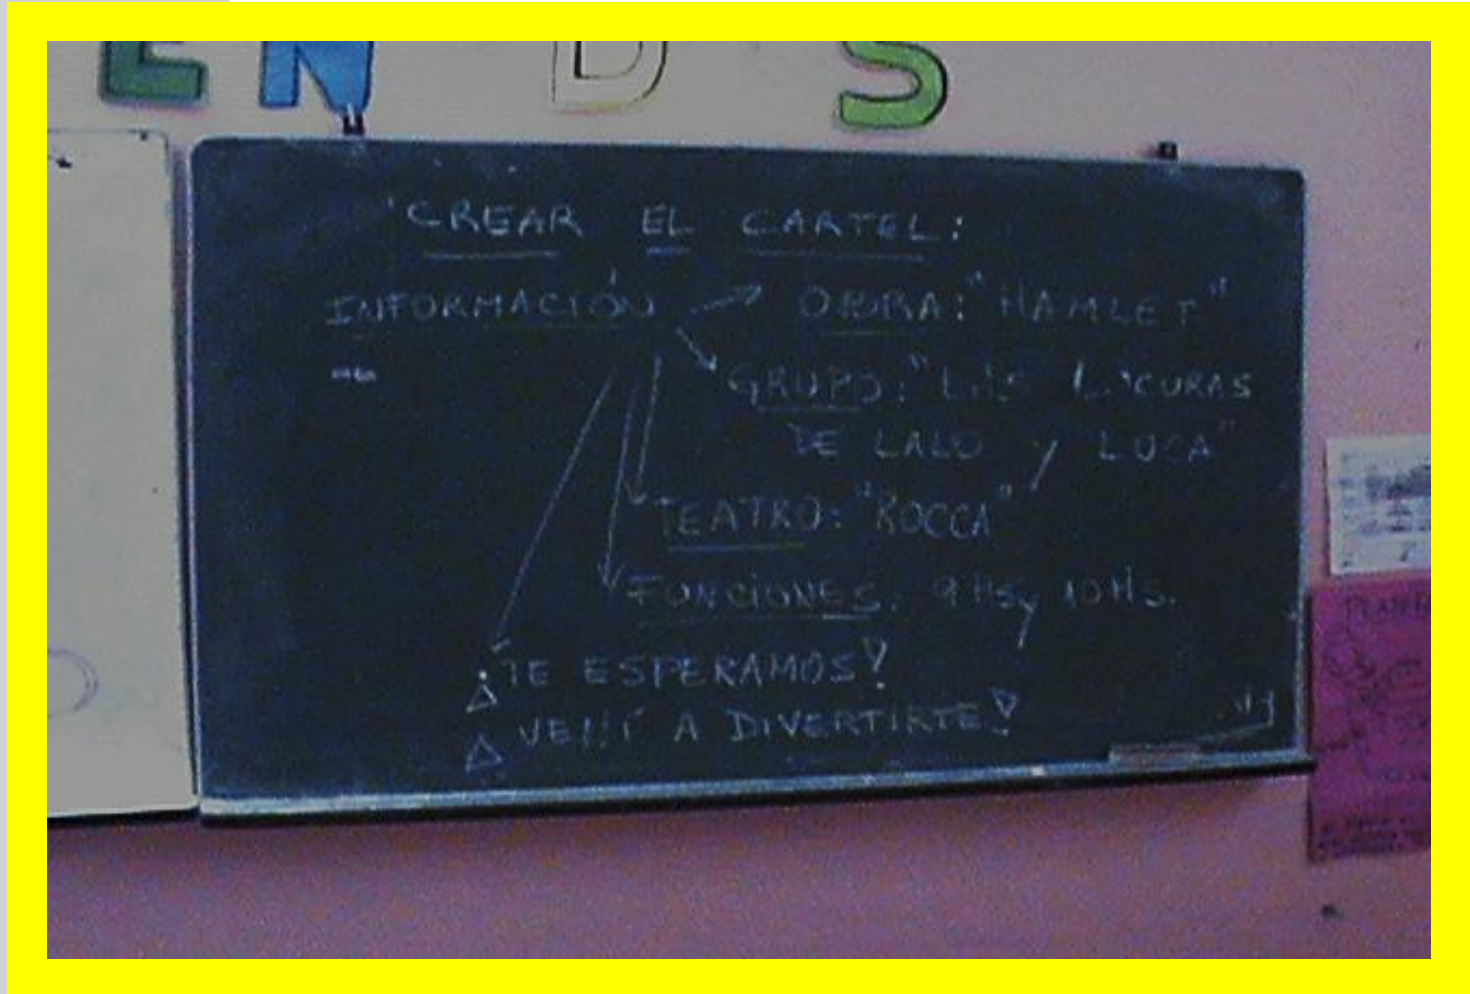 EN DS
CREAR EL CARTEL:
INFORMACIÓN OBRA: "HAMLET"
GRUPO: "LAS LOCURAS
DE LALO y LUCA"
TEATRO: "ROCCA"
FUNCIONES: 9 HS y 10 HS.
¡TE ESPERAMOS!
VENÍ A DIVERTIRTE!